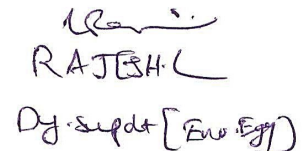 RAJESH.C
Dy.supdt [Env.Egg)